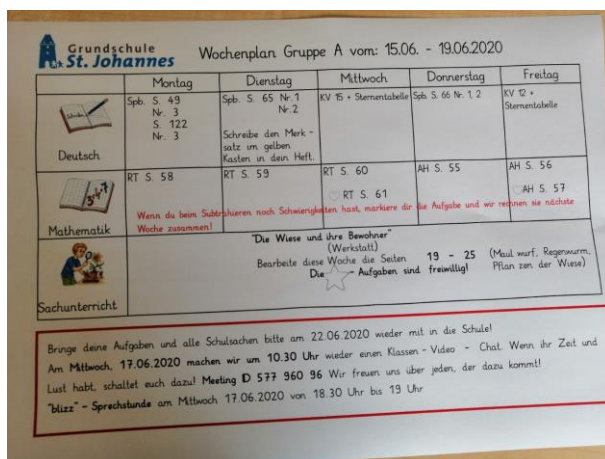 Grundschule
St. Johannes
Wochenplan Gruppe A vom: 15.06. - 19.06.2020
Montag Dienstag Mittwoch Donnerstag Freitag
Deutsch
Spb. S. 49
Nr. 3
S. 122
Nr. 3
Spb. S. 65 Nr.1
Nr.2
Schreibe den Merk -
satz im gelben
Kasten in dein Heft.
KV 15 + Sternentabelle
Spb S. 66 Nr. 1, 2
KV 12 +
Sternentabelle
Mathematik
RT S. 58
RT S. 59
RT S. 60
RT S. 61
AH S. 55
AH S. 56
AH S. 57
Wenn du beim Subtrahieren noch Schwierigkeiten hast, markiere dir die Aufgabe und wir rechnen sie nächste
Woche zusammen!
Sachunterricht
"Die Wiese und ihre Bewohner"
(Werkstatt)
Bearbeite diese Woche die Seiten 19 - 25 (Maul wurf, Regenwurm,
Pflan zen der Wiese)
Die - Aufgaben sind freiwillig!
Bringe deine Aufgaben und alle Schulsachen bitte am 22.06.2020 wieder mit in die Schule!
Am Mittwoch, 17.06.2020 machen wir um 10.30 Uhr wieder einen Klassen - Video - Chat. Wenn ihr Zeit und
Lust habt, schaltet euch dazu! Meeting ID 577 960 96 Wir freuen uns über jeden, der dazu kommt!
"blizz" - Sprechstunde am Mittwoch 17.06.2020 von 18.30 Uhr bis 19 Uhr